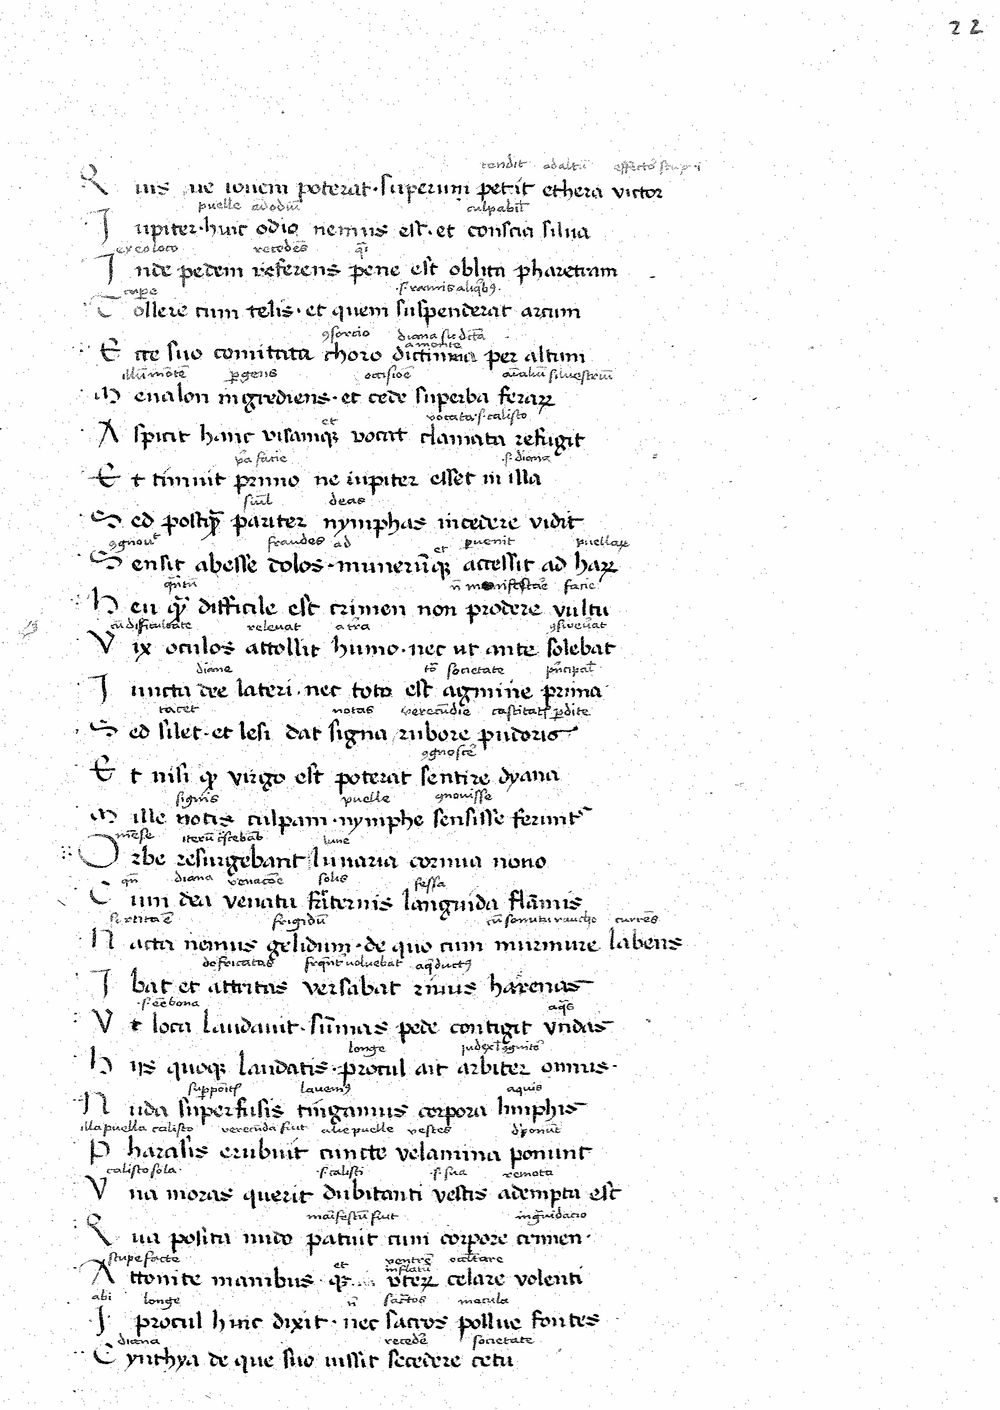 22
tendit ad altu effecto stupri
Quis ue iouem poterat · superum petit ethera victor
puelle ad odiu culpabil
Iupiter · huic odio nemus est · et conscia silua
ex eo loco recedes qi
Inde pedem referens pene est oblita pharetram
cape · s · ramis aliqbȝ ·
Tollere cum telis · et quem suspenderat arcum
ꝯsorcio diana sic dcta a monte
Ecce suo comitata choro dictinna per altum
illu mote pgens occisioe aialiu siluestriu
Menalon ingrediens · et cede superba feraꝝ
et vocata · s · calisto
Aspicit hanc visamqȝ vocat clamata refugit
pa facie · s · diana
Et timuit primo ne iupiter esset in illa
simul deas
Sed postqȝ pariter nymphas incedere vidit
ꝯgnouit fraudes ad et puenit puellaꝝ
Sensit abesse dolos · numerūqȝ accessit ad haꝝ
qntu n manifestare facie
Heu qȝ difficile est crimen non prodere vultu
cu difficultate releuat a tra ꝯsueuat
Vix oculos attollit humo · nec ut ante solebat
diane to societate pncipal
Iuncta dee lateri · nec toto est agmine prima
tacet notas verecudie castitatis pdite
Sed silet · et lesi dat signa rubore pudoris
ꝯgnosce
Et nisi qȝ virgo est poterat sentire dyana
signis puelle ꝯgnouisse
Mille notis culpam · nymphe sensisse ferunt
mese iteru cscebab lune
Orbe resurgebant lunaria cornua nono
qn diana venacoe solis fessa
Cum dea venatu fraternis languida flamis
frigidu cu sonitu raucho currens
Nacta nemus gelidum · de quo cum murmure labens
defricatas frqnt voluebat aq ductȝ
Ibat et attritas versabat riuus harenas
· s · ee bona aqs
Vt loca laudauit · sumas pede contigit vndas
longe judex l ꝯgnitor
Hijs quoqȝ laudatis · procul ait arbiter omnis ·
suppoitis lauemȝ aquis
Nuda superfusis tingamus corpora limphis
illa puella calisto verecuda fuit alie puelle vestes dponut
Pharasis erubuit cuncte velamina ponunt
calisto sola · s · calisti · s · sua remota
Vna moras querit dubitanti vestis adempta est
maifestu fuit ingnidacio
Qua posita nudo patuit cum corpore crimen ·
stupefacte et ventre inflatu occltare
Attonite manibus qȝ vteꝝ celare volenti
abi longe n sactos macula
I procul hinc dixit · nec sacros pollue fontes
diana recede societate
Cynthya de que suo iussit secedere cetu